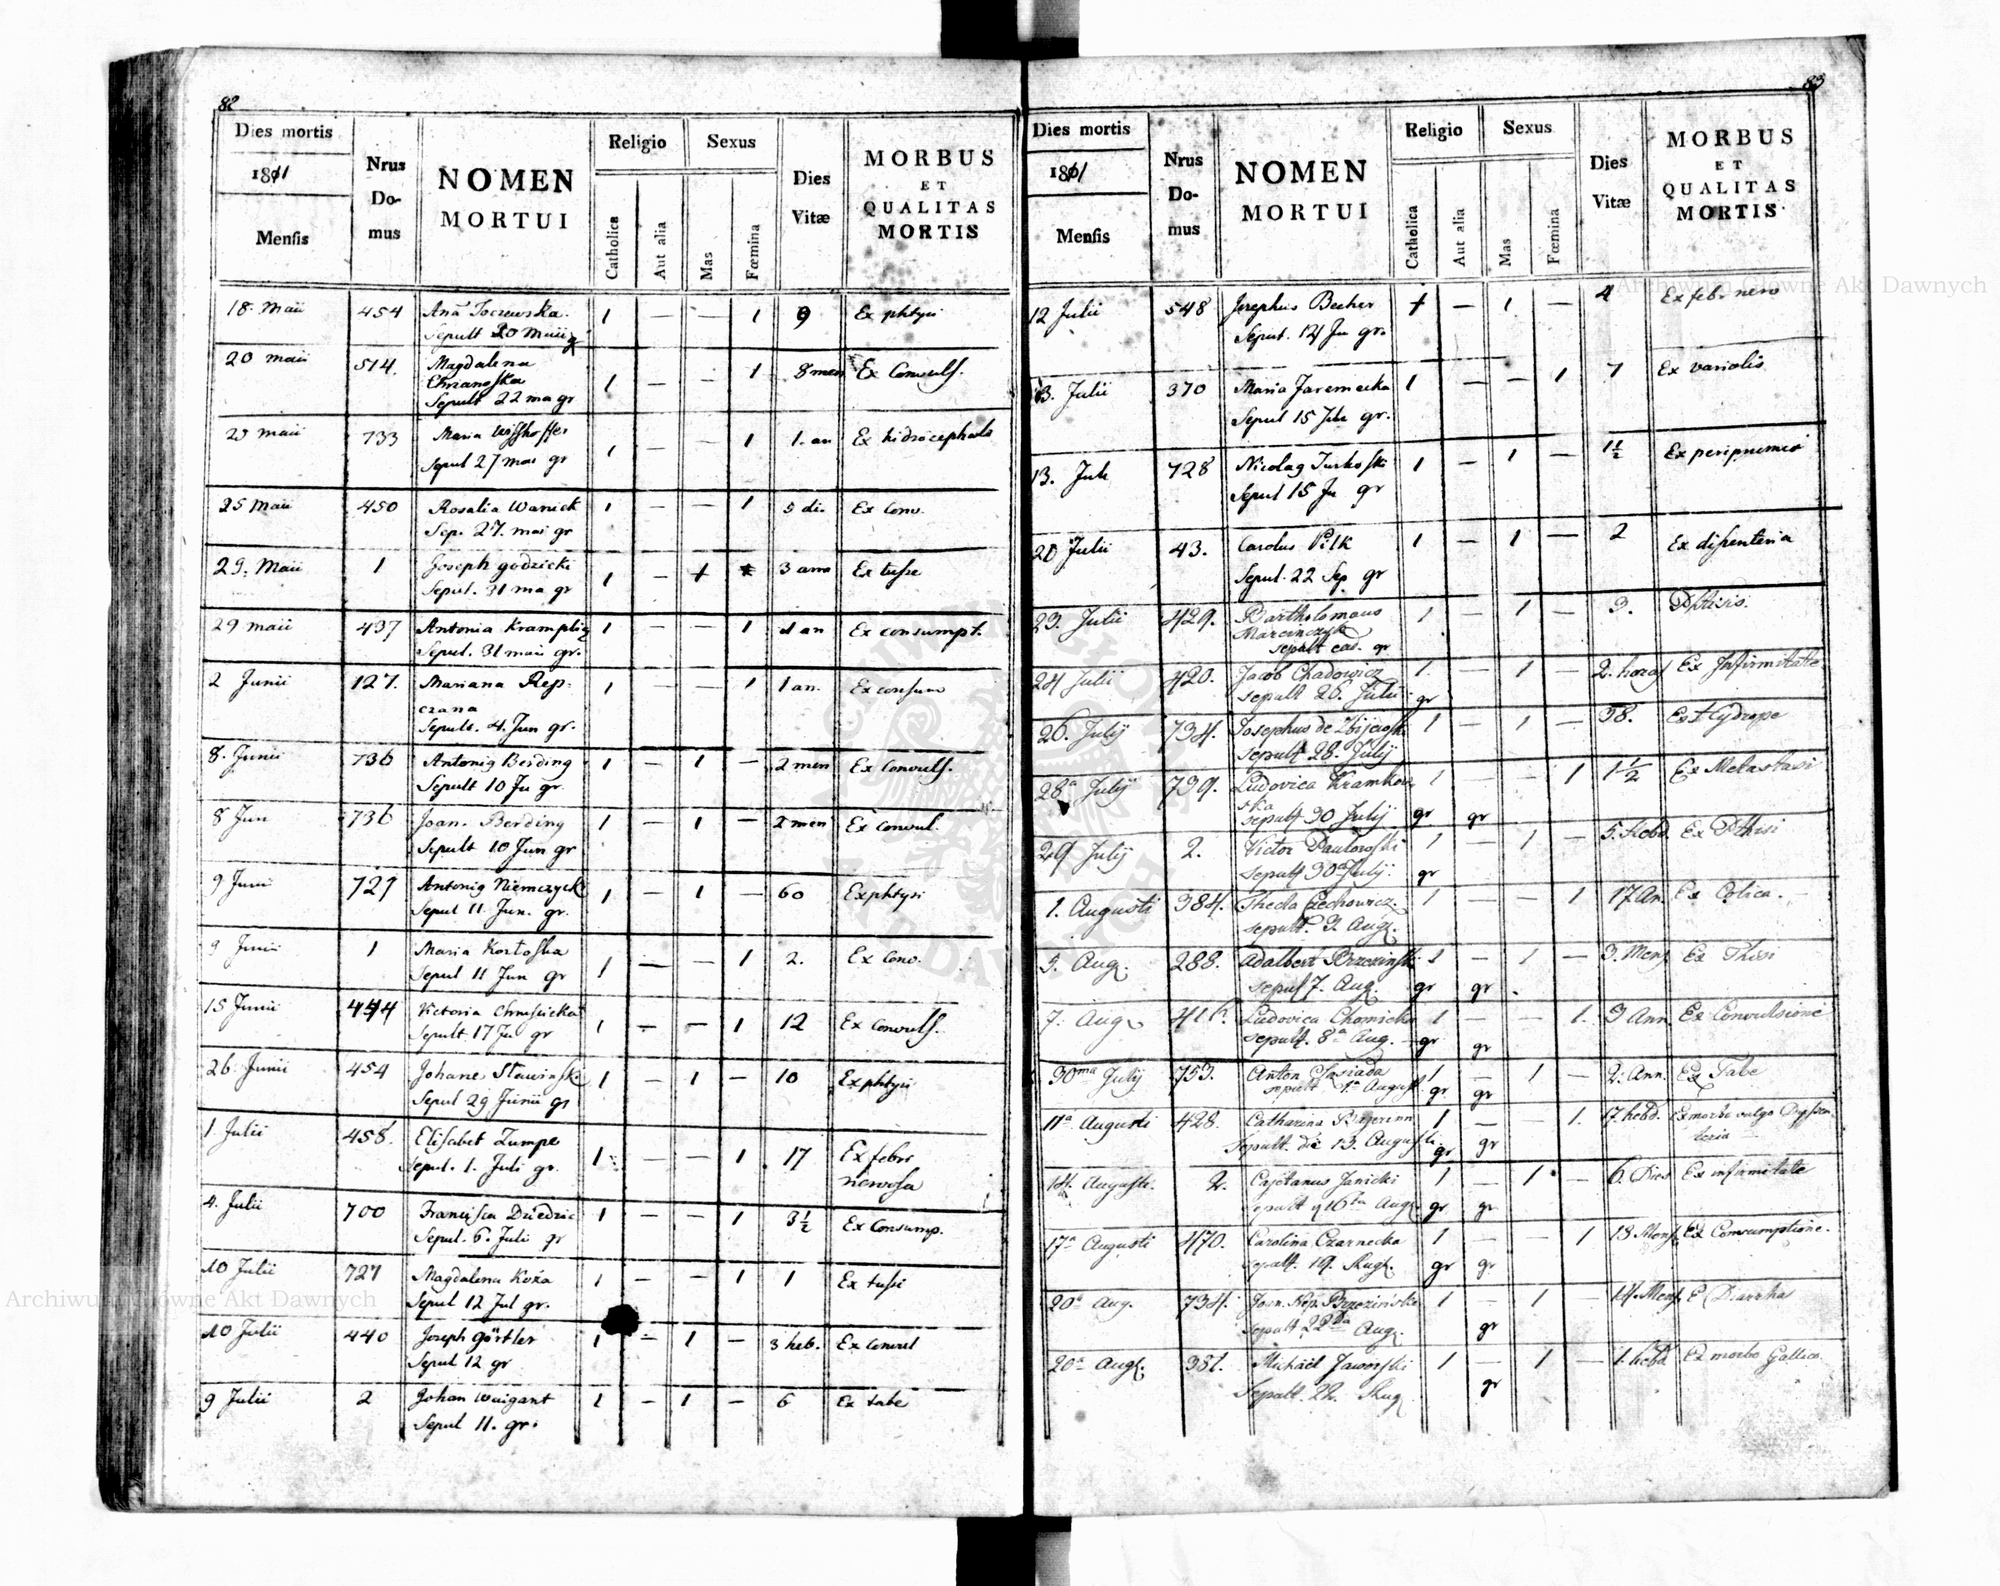 82
Dies mortis
1811
Mensis
Nrus
Do-
mus
NOMEN
MORTUI
Religio
Catholica
Aut alia
Sexus
Mas
Fœmina
Dies
Vitæ
MORBUS
ET
QUALITAS
MORTIS
18. Maii 454 Aña 1 — — 1 9 Ex phtysi
Sepult 20 Maii
20 maii 514. Magdalena 1 — — 1 8 men Ex Convuls.
Chrianoska
Sepult 22 ma gr
maii 733 Maria 1 — 1 1. an Ex hidrocephalo
Sepul 27 mai gr
25 Maii 450 Rosalia Wanick 1 — — 1 5 di. Ex Conv.
Sep. 27. mai gr
29. Maii 1 Joseph godzicki 1 — + 3 ann Ex tusse
Sepul. 31 ma gr
29 maii 437 Antonia 1 — — 1 an Ex consumpt.
Sepul. 31 maii gr.
2 Junii 127. Mariana Rep- 1 — — 1 1 an. Ex consum
czana
Sepult. 4. Jun gr.
8. Junii 736 Antonig Berding 1 — 1 — 2 men Ex Convuls.
Sepult 10 Ju gr.
8 Jun 736 Joan. Berding 1 — 1 — 2 men Ex Convul.
Sepult 10 Jun gr
9 Junii 727 Antonig Niemczyck 1 — 1 — 60 Ex phtysi
Sepul 11. Jun. gr.
9 Junii 1 Maria Kortoska 1 — — 1 2. Ex Conv.
Sepul 11 Jun gr
15 Junii 444 Victoria 1 — — 1 12 Ex Convuls.
Sepult 17 Ju gr
26. Junii 454 Johanes 1 — 1 — 10 Ex phtysi
Sepul 29 Junii gr
1. Julii 458. Elisabet Zumpe 1 — — 1 17 Ex febr
Sepul. 1. Juli gr. nervosa
4. Julii 700 Francisca Dziedzic 1 — — 1 3½ Ex Consump.
Sepul. 6. Juli gr
10 Julii 727 Magdalena Koza 1 — — 1 1 Ex tussi
Sepul 12 Jul gr.
10 Julii 440 Joseph Görtler 1 — 1 — 3 heb. Ex Convul
Sepul 12 gr
9 Julii 2 Johan Waigant 1 — 1 — 6 Ex tabe
Sepul 11. gr.
83
Dies mortis
1811
Mensis
Nrus
Do-
mus
NOMEN
MORTUI
Religio
Catholica
Aut alia
Sexus
Mas
Fœmina
Dies
Vitæ
MORBUS
ET
QUALITAS
MORTIS
12 Julii 548 Josephus Becher + — 1 — 4 Ex febr nerv
Sepul. 14 Ju gr.
13. Julii 370 Maria Jaremecka 1 — — 1 7 Ex variolis
Sepul 15 gr.
13. Juli 728 Nicolag Turkoski 1 — 1 — 1½ Ex peripnemia
Sepul 15 Ju gr
Julii 43. Carolus Pilk 1 — 1 — 2 Ex disenteria
Sepul. 22 Sep gr
23. Julii 429. Bartholomaus 1 — 1 — 3. Phtisis.
Marcinczyk
Sepult ead. gr
24 Julii 420. Jacob Chadowicz 1. — 1 — 2. horas Ex Infirmitate
sepult 26. Julii gr
26. July 734. Josephus de 1 — 1 — 38. Ex Hydrope
Sepult 28. July
28a July 739. Ludovica Kramkow 1 — — 1 1½ Ex Metastasi
ska
Sepult 30 July gr gr
29 July 2. Victor Pawlowski 1 — 1 — 5. Hebd. Ex Phtisi
Sepult 30a July. gr
1. Augusti 384. Thecla Czechowicz 1 — — 1 17 An. Ex Colica.
Sepult. 3. Aug.
5. Aug. 288. Adalbert Brzezinski 1 — 1 — 3. Mens Ex Thisi
Sepult 7. Aug. gr gr
7. Aug. Ludovica Chomicka 1 — — 1. 3 Ann. Ex Convulsione
Sepult. 8a Aug. gr gr
30ma July 753. Anton 1 — 1 — 2. Ann. Ex Tabe
Sepult 1a August. gr gr
11a Augusti 428. Catharina 1 — — 1. 17. hebd. Ex morbo vulgo Dyssen-
Sepult. die 13. Augusti. gr gr teria
14. Augusti. 2. Cajetanus Janicki 1 — 1 — 6. Dies Ex infirmitate
Sepult 16ta Aug. gr gr
17a Augusti 470. Carolina Czarnecka 1 — — 1 18 Mens. Ex Consumptione.
Sepult. 19. Aug. gr gr
20a Aug. 734. Joan. Nep. Brzezinski 1 — 1 — 14. Mens. E Diarrha
Sepult 22da Aug. gr
20a Aug. 381. Michäel Jaworski 1 — 1 — 1. hebd Ex morbo Gallico
Sepult. 22. Aug gr
Archiwum Główne Akt Dawnych
Archiwum Główne Akt Dawnych
ARCHIWUM GŁÓWNE
AKT DAWNYCH